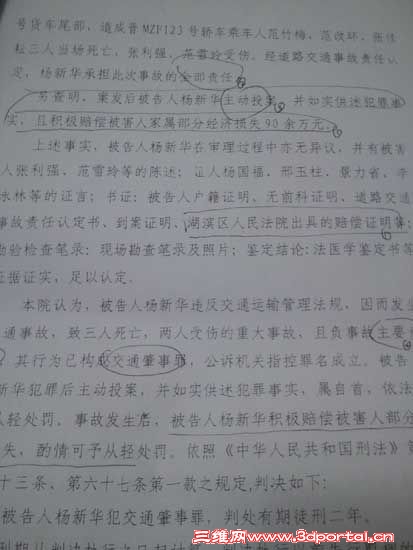 号货车尾部，造成晋MZF123号轿车乘车人范竹梅、范改环、张佳
耘三人当场死亡，张利强、范雪玲受伤。经道路交通事故责任认
定，杨新华承担此次事故的全部责任。
另查明，案发后被告人杨新华主动投案，并如实供述犯罪事
实，且积极赔偿被害人家属部分经济损失90余万元。
上述事实，被告人杨新华在审理过程中亦无异议，并有被害
人张利强、范雪玲等的陈述；证人杨国福、邢玉柱、景力省、李
水林等的证言；书证：被告人户籍证明、无前科证明、道路交通
事故责任认定书、到案证明、湖滨区人民法院出具的赔偿证明等；
勘验检查笔录：现场勘查笔录及照片；鉴定结论：法医学鉴定书等
证据证实，足以认定。
本院认为，被告人杨新华违反交通运输管理法规，因而发生
通事故，致三人死亡，两人受伤的重大事故，且负事故主要
，其行为已构成交通肇事罪，公诉机关指控罪名成立。被告
新华犯罪后主动投案，并如实供述犯罪事实，属自首，依法
从轻处罚。事故发生后，被告人杨新华积极赔偿被害人部分
失，酌情可予从轻处罚。依照《中华人民共和国刑法》第
十三条、第六十七条第一款之规定，判决如下：
被告人杨新华犯交通肇事罪，判处有期徒刑二年。
三维网
www.3dportal.cn